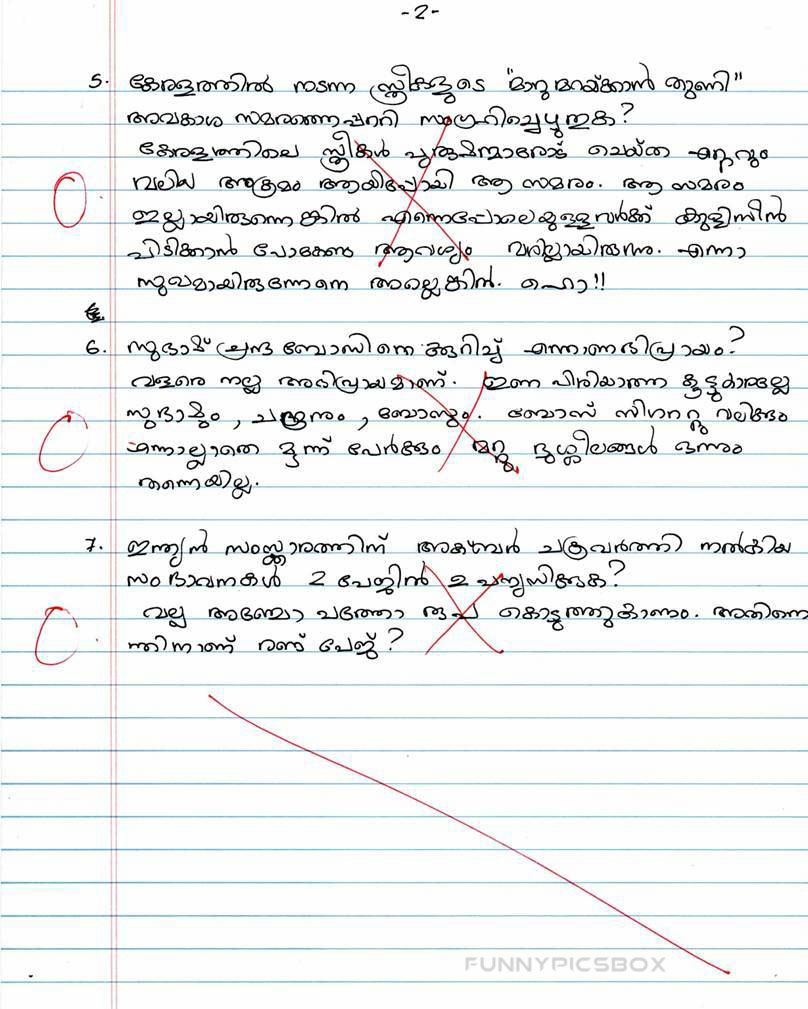 -2-
5. കേരളത്തിൽ നടന്ന സ്ത്രീകളുടെ "മാറുമറയ്ക്കാൻ തുണി"
അവകാശ സമരത്തെപ്പററി സംഗ്രഹിച്ചെഴുതുക?
കേരളത്തിലെ സ്ത്രീകൾ പുരുഷന്മാരോട് ചെയ്ത ഏറ്റവും
വലിയ അക്രമം ആയിപ്പോയി ആ സമരം. ആ സമരം
ഇല്ലായിരുന്നെങ്കിൽ എന്നെപോലെയുള്ളവർക്ക് കുളിസീൻ
പിടിക്കാൻ പോകേണ്ട ആവശ്യം വരില്ലായിരുന്നു. എന്നാ
സുഖമായിരുന്നേനെ അല്ലെങ്കിൽ. ഹൊ!!
6. സുഭാഷ് ചന്ദ്ര ബോസിനെ ക്കുറിച്ച് എന്താണഭിപ്രായം?
വളരെ നല്ല അഭിപ്രായമാണ്. ഇണ പിരിയാത്ത കൂട്ടുകാരല്ലേ
സുഭാഷും, ചന്ദ്രനും, ബോസും. ബോസ് സിഗററ്റു വലിക്കും
എന്നാല്ലാതെ മൂന്ന് പേർക്കും മറ്റു ദുശ്ശീലങ്ങൾ ഒന്നും
തന്നെയില്ല.
7. ഇന്ത്യൻ സംസ്ക്കാരത്തിന് അക്ബർ ചക്രവർത്തി നൽകിയ
സംഭാവനകൾ 2 പേജിൽ ഉപന്യസിക്കുക?
വല്ല അഞ്ചോ പത്തോ രൂപ കൊടുത്തുകാണും. അതിനെ
ന്തിനാണ് രണ്ട് പേജ്?
FUNNYPICSBOX